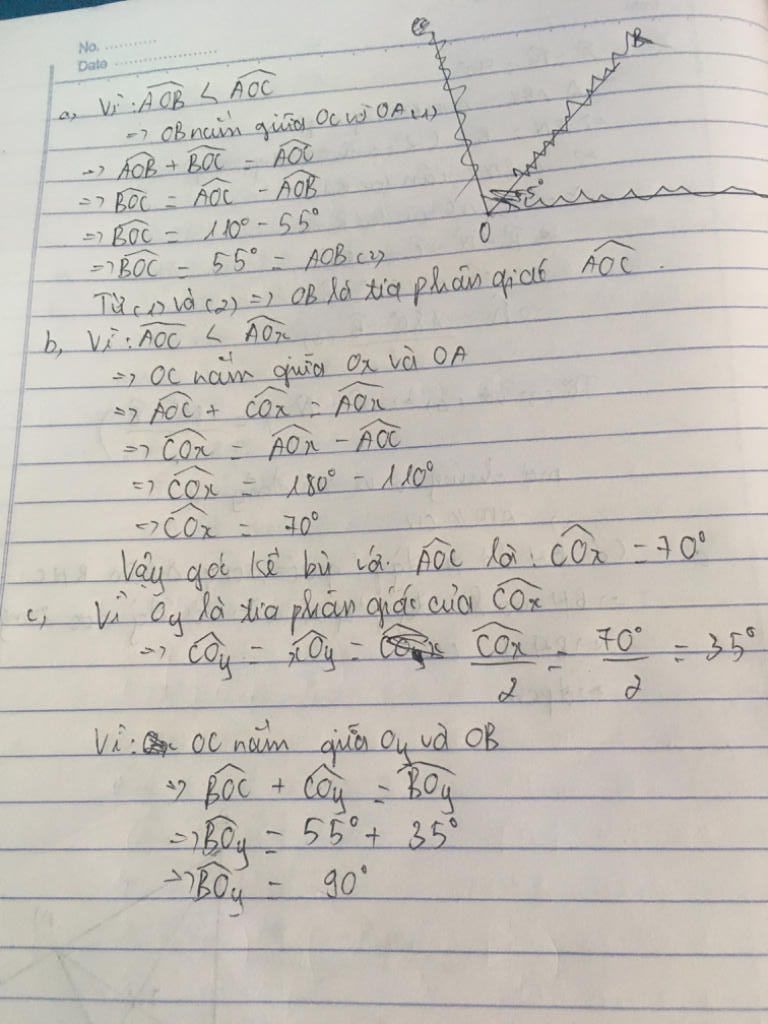 No. ............
Date ........................
C
B
55°
O
a, Vì: AOB < AOC
=> OB nằm giữa OC và OA (1)
=> AOB + BOC = AOC
=> BOC = AOC - AOB
=> BOC = 110° - 55°
=> BOC = 55° = AOB (2)
Từ (1) và (2) => OB là tia phân giác AOC.
b, Vì: AOC < AOx
=> OC nằm giữa Ox và OA
=> AOC + COx = AOx
=> COx = AOx - AOC
=> COx = 180° - 110°
=> COx = 70°
Vậy góc kề bù với AOC là: COx = 70°
c, Vì Oy là tia phân giác của COx
=> COy = xOy = COx/2 = 70°/2 = 35°
Vì: OC nằm giữa Oy và OB
=> BOC + COy = BOy
=> BOy = 55° + 35°
=> BOy = 90°